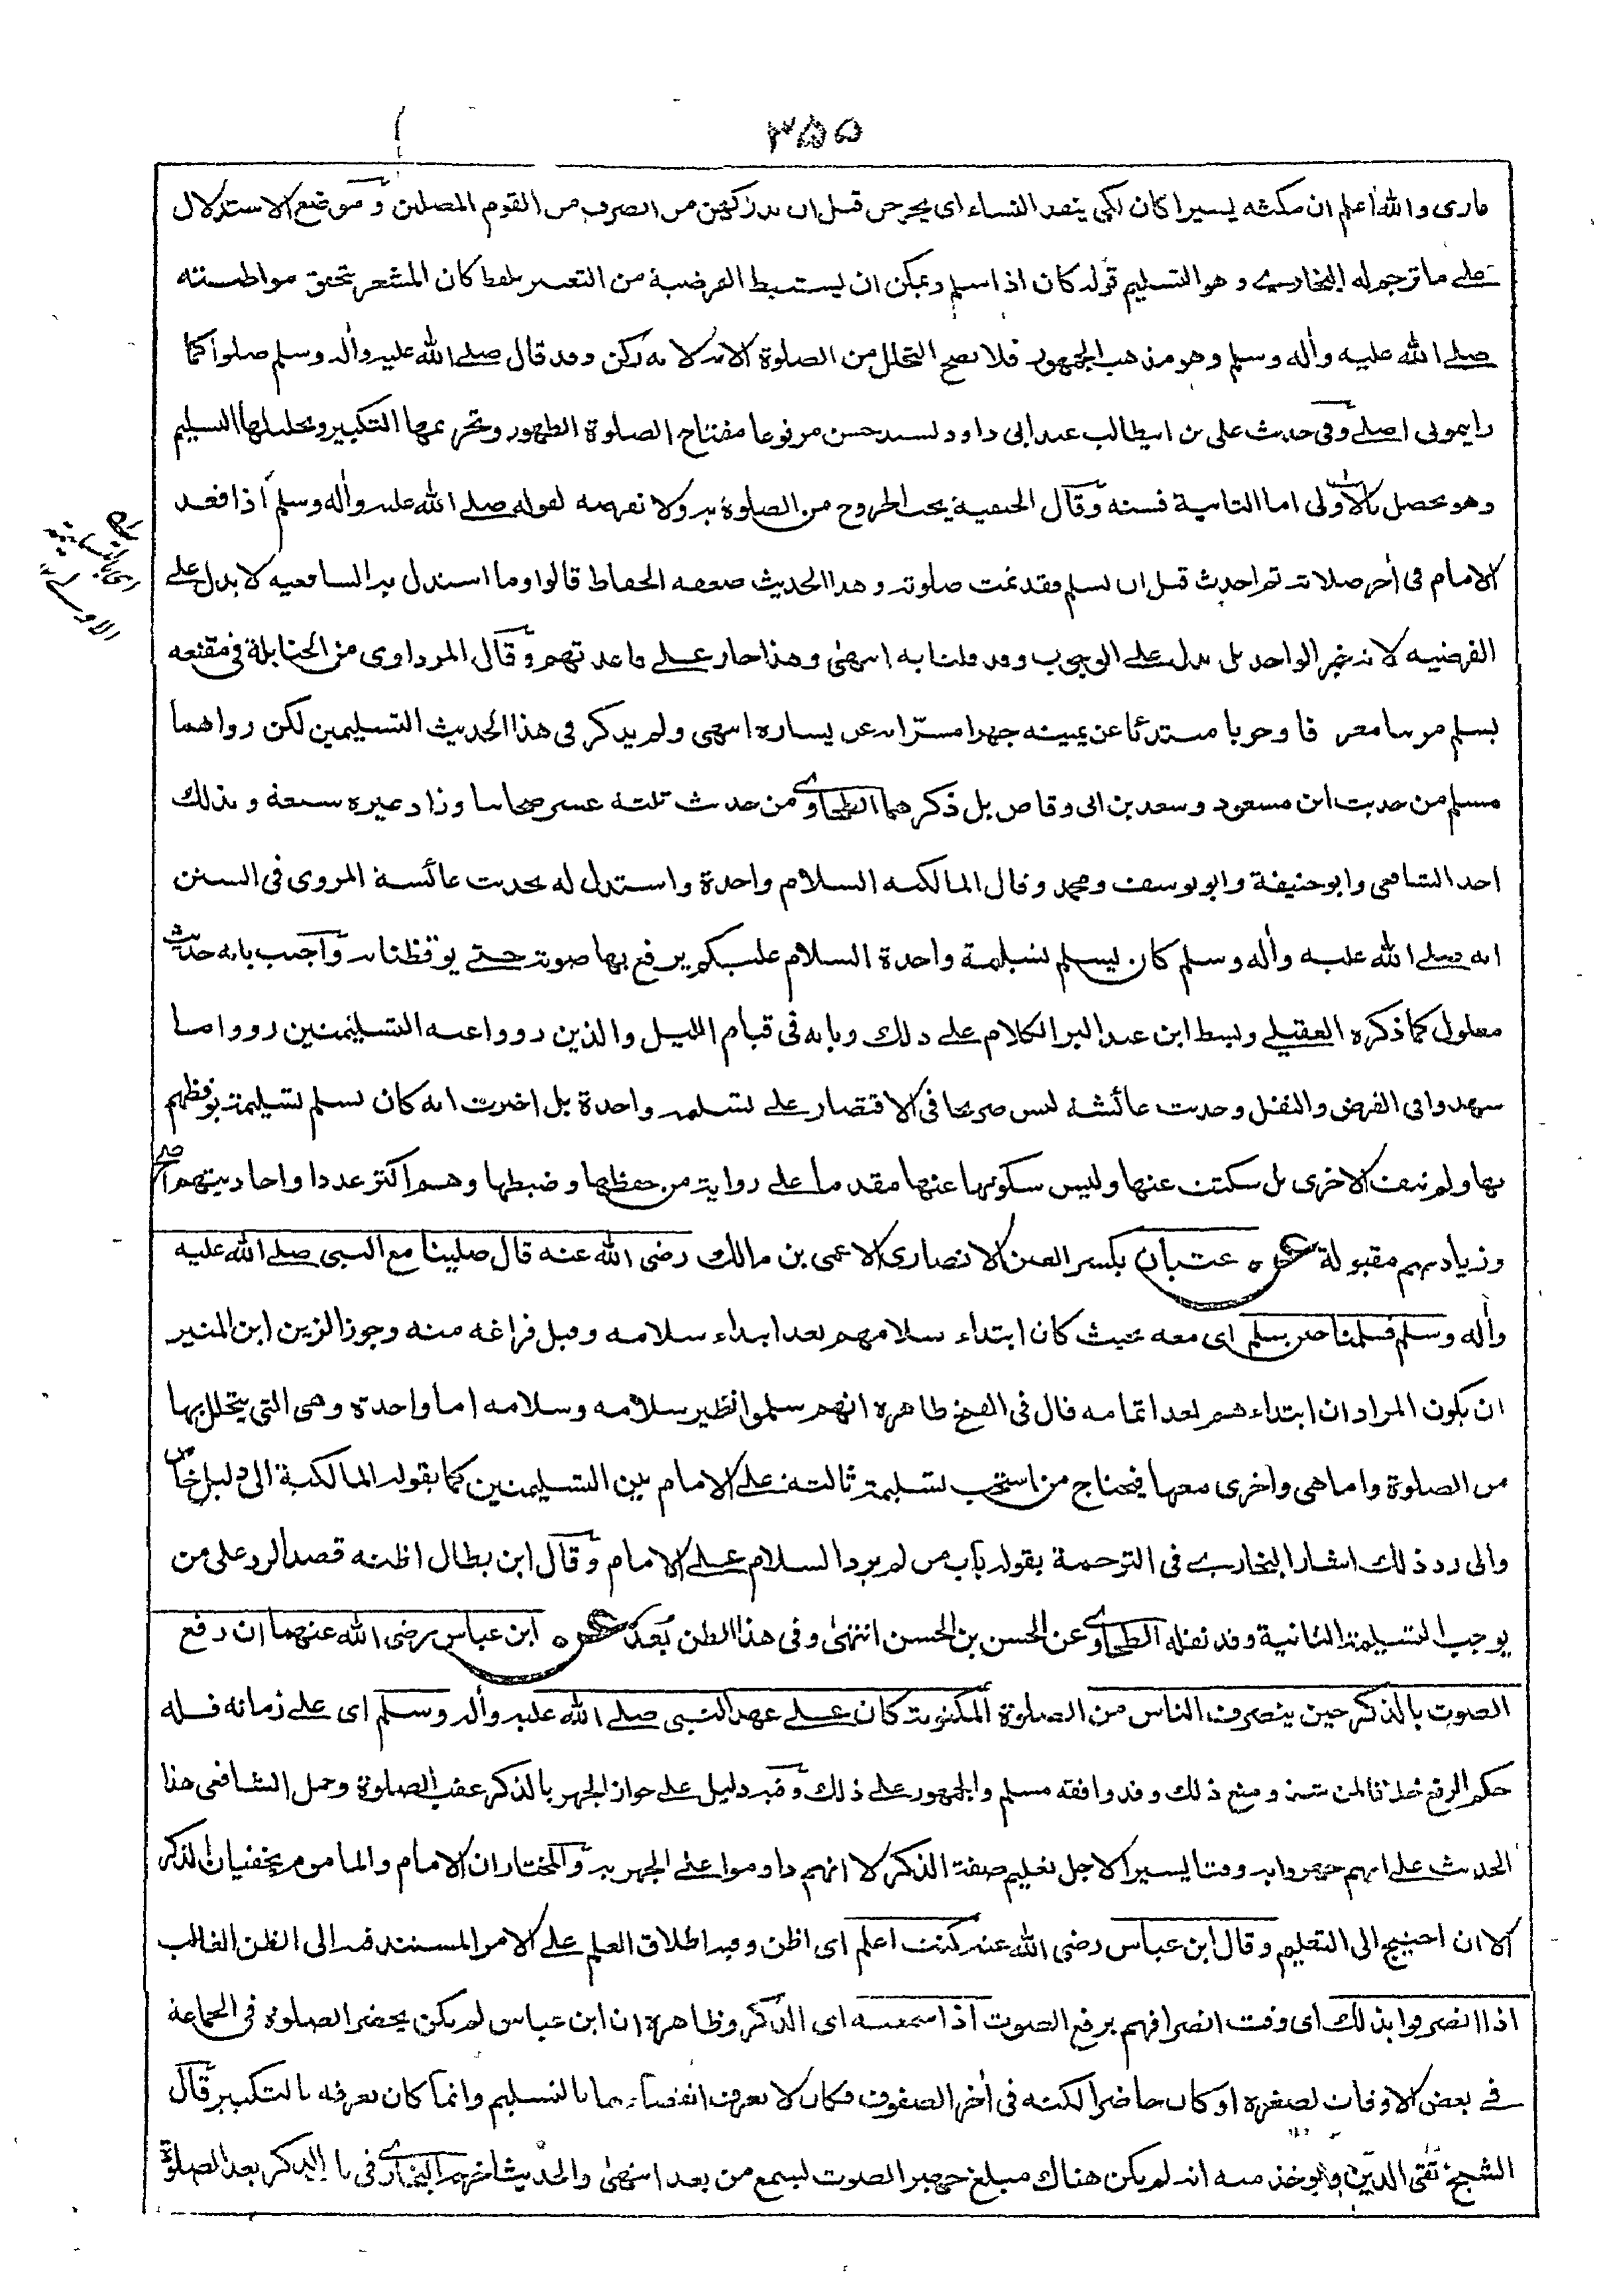 ٣٥٥
فارى والله اعلم ان مكثه يسيرا كان لكى ينفد النساء اى يخرجن قبل ان يدركهن من انصرف من القوم المصلين وموضع الاستدلال
على ما ترجم له البخارى وهو التسليم قوله كان اذا سلم ويمكن ان يستنبط الفرضية من التعبير بلفظ كان المشعر بتحقق مواظبته
صلى الله عليه وأله وسلم وهو مذهب الجمهور فلا يصح التحلل من الصلوة الا به لانه ركن وقد قال صلى الله عليه وأله وسلم صلوا كما
رايتمونى اصلى وفى حديث على بن ابيطالب عند ابى داود بسند حسن مرفوعا مفتاح الصلوة الطهور وتحريمها التكبير وتحليلها التسليم
وهو يحصل بالأولى اما الثانية فسنه وقال الحنفية يجب الخروج من الصلوة به ولا نفرضه لقوله صلى الله عليه وأله وسلم اذا قعد
الامام فى أخر صلاته ثم احدث قبل ان يسلم فقد تمت صلوته وهذا الحديث ضعفه الحفاظ قالوا وما استدل به الشافعيه لا يدل على
الفرضيه لانه خبر الواحد بل يدل على الوجوب وقد قلنا به انتهى وهذا جار على قاعدتهم وقال المرداوى من الحنابلة فى مقنعه
يسلم مرتبا معرفا وجوبا مبتدئا عن يمينه جهرا مسرّا به عن يساره انتهى ولم يذكر فى هذا الحديث التسليمين لكن رواهما
مسلم من حديث ابن مسعود وسعد بن ابى وقاص بل ذكرهما الطحاوى من حديث ثلثة عشر صحابيا وزاد غيره سبعة وبذلك
اخذ الشافعى وابو حنيفة وابو يوسف ومحمد وقال المالكيه السلام واحدة واستدل له بحديث عائشة المروى فى السنن
انه صلى الله عليه وأله وسلم كان يسلم تسليمة واحدة السلام عليكم يرفع بها صوته حتى يوقظنا به واجيب بانه حديث
معلول كما ذكره العقيلى وبسط ابن عبد البر الكلام على ذلك وبانه فى قيام الليل والذين رووا عنه التسليمتين رووا ما
شهدوا فى الفرض والنفل وحديث عائشة ليس صريحا فى الاقتصار على تسليمة واحدة بل اخبرت انه كان يسلم تسليمة يوقظهم
بها ولم تنف الاخرى بل سكتت عنها وليس سكوتها عنها مقدما على رواية من حفظها وضبطها وهم اكثر عددا واحاديثهم اصح
وزيادتهم مقبولة عن عتبان بكسر العين الانصارى الاعمى بن مالك رضى الله عنه قال صلينا مع النبى صلى الله عليه
وأله وسلم فسلمنا حين يسلم اى معه بحيث كان ابتداء سلامهم بعد ابتداء سلامه وقبل فراغه منه وجوز الزين ابن المنير
ان يكون المراد ان ابتداءهم بعد اتمامه قال فى الفتح ظاهره انهم سلموا نظير سلامه وسلامه اما واحدة وهى التى يتحلل بها
من الصلوة واما هى واخرى معها فيحتاج من استحب تسليمة ثالثة على الامام بين التسليمتين كما يقوله المالكية الى دليل خاص
والى رد ذلك اشار البخارى فى الترجمة بقوله باب من لم يرد السلام على الامام وقال ابن بطال اظنه قصد الرد على من
يوجب التسليمة الثانية وقد نقله الطحاوى عن الحسن بن الحسن انتهى وفى هذا الظن بعد عن ابن عباس رضى الله عنهما ان رفع
الصوت بالذكر حين ينصرف الناس من الصلوة المكتوبة كان على عهد النبى صلى الله عليه وأله وسلم اى على زمانه فله
حكم الرفع خلافا لمن شذ ومنع ذلك وقد وافقه مسلم والجمهور على ذلك وفيه دليل على جواز الجهر بالذكر عقب الصلوة وحمل الشافعى هذا
الحديث على انهم جهروا به وقتا يسيرا لاجل تعليم صفة الذكر لا انهم داوموا على الجهر به والمختار ان الامام والماموم يخفيان الذكر
الا ان احتيج الى التعليم وقال ابن عباس رضى الله عنه كنت اعلم اى اظن وفيه اطلاق العلم على الامر المستند فيه الى الظن الغالب
اذا انصرفوا بذلك اى وقت انصرافهم برفع الصوت اذا سمعته اى الذكر وظاهره ان ابن عباس لم يكن يحضر الصلوة فى الجماعة
فى بعض الاوقات لصغره او كان حاضرا لكنه فى أخر الصفوف فكان لا يعرف انقضاءها بالتسليم وانما كان يعرفه بالتكبير قال
الشيخ تقى الدين ويوخذ منه انه لم يكن هناك مبلغ جهير الصوت يسمع من بعد انتهى والحديث اخرجه البخارى فى باب الذكر بعد الصلوة